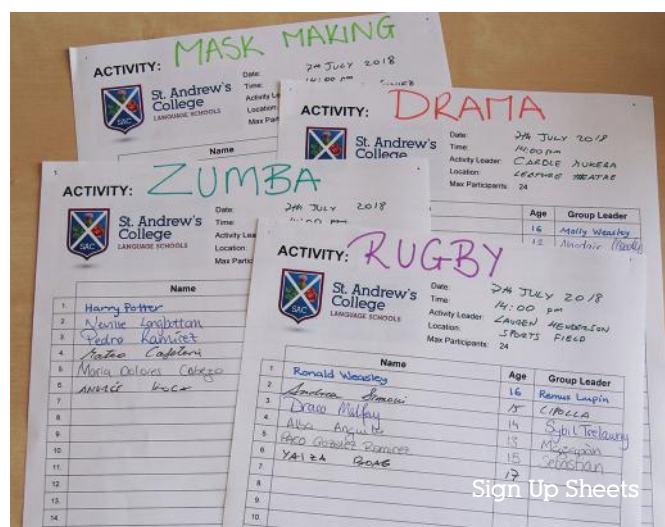 ACTIVITY: MASK MAKING
St. Andrew's
College
LANGUAGE SCHOOLS
SAC
Date: 7th JULY 2018
Time: 14:00 pm
Activity Le
Location:
Max Part
Name
ACTIVITY: DRAMA
St. Andrew's
College
Date: 7th JULY 2018
Time: 14:00 pm
Activity Leader: CAROLE MUKERA
Location: LECTURE THEATRE
Max Participants: 24
Age Group Leader
16 Molly Weasley
ACTIVITY: ZUMBA
St. Andrew's
College
LANGUAGE SCHOOLS
SAC
Date: 7th JULY 2018
Time: 14:00 pm
Activity Lea
Location:
Max Partic
Name
1. Harry Potter
2. Neville Longbottom
3. Pedro Ramirez
4. Mateo Cafetera
5. Maria Dolores Cabeza
6.
7.
8.
9.
10.
11.
12.
13.
14.
ACTIVITY: RUGBY
St. Andrew's
College
LANGUAGE SCHOOLS
SAC
Date: 7th JULY 2018
Time: 14:00 pm
Activity Leader: LAUREN HENDERSON
Location: SPORTS FIELD
Max Participants: 24
Name Age Group Leader
1. Ronald Weasley 16 Remus Lupin
2. Andrea Simoni 15 CIPOLLA
3. Draco Malfoy 14 Sybil Trelawny
4. Alba Anguita 13
5. PACO González Ramirez 15 Sebastian
6. YAIZA 17
7.
8.
9.
10.
Sign Up Sheets